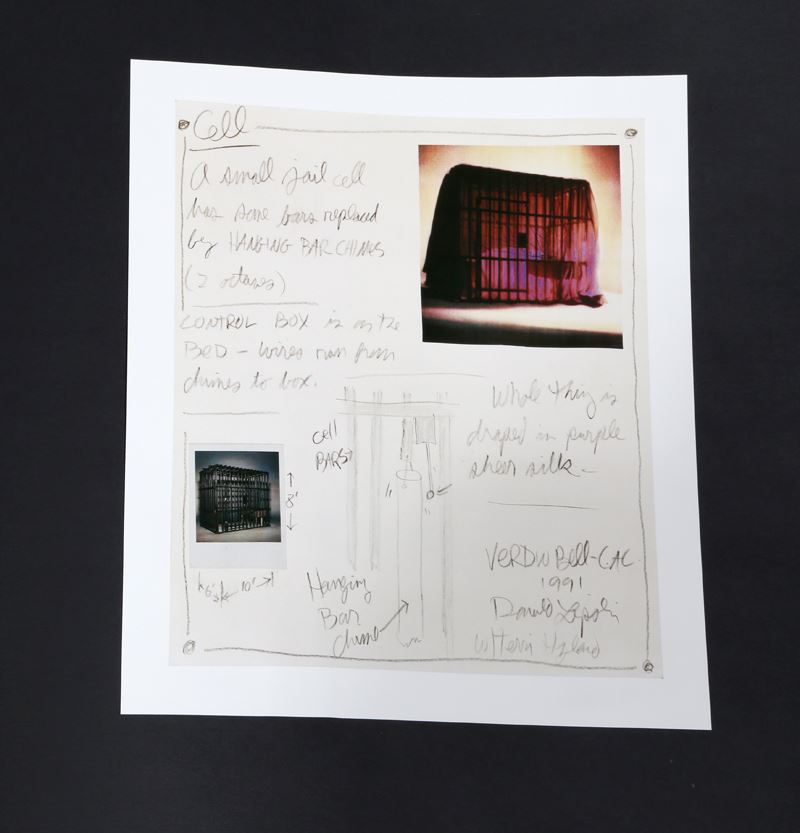 Cell
A small jail cell
has some bars replaced
by HANGING BAR CHIMES
(2 octaves)
CONTROL BOX is on the
BED – wires run from
chimes to box.
Whole thing is
draped in purple
sheer silk –
cell
BARS
8'
6' 10'
Hanging
Bar
chime
1991
Donald